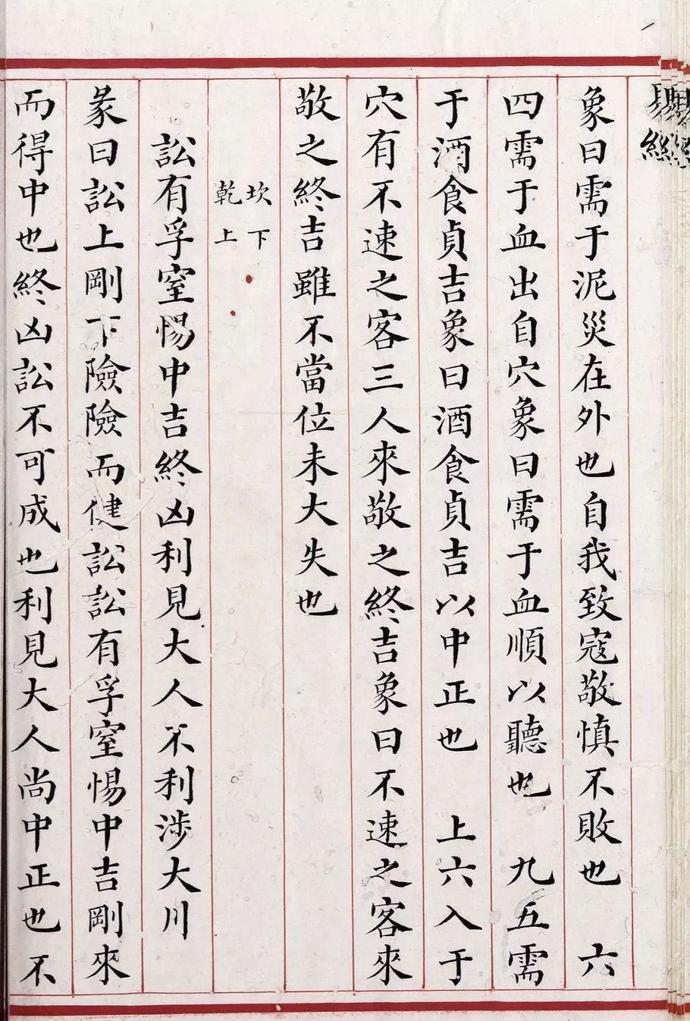 象曰需于泥災在外也自我致寇敬慎不敗也　六
四需于血出自穴象曰需于血順以聽也　九五需
于酒食貞吉象曰酒食貞吉以中正也　上六入于
穴有不速之客三人來敬之終吉象曰不速之客來
敬之終吉雖不當位未大失也
坎下
乾上
訟有孚窒惕中吉終凶利見大人不利涉大川
彖曰訟上剛下險險而健訟訟有孚窒惕中吉剛來
而得中也終凶訟不可成也利見大人尚中正也不